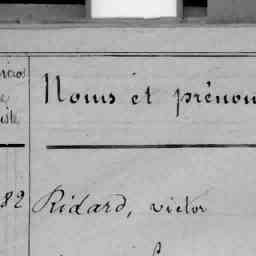 Noms et prénom
82 Ridard, victor